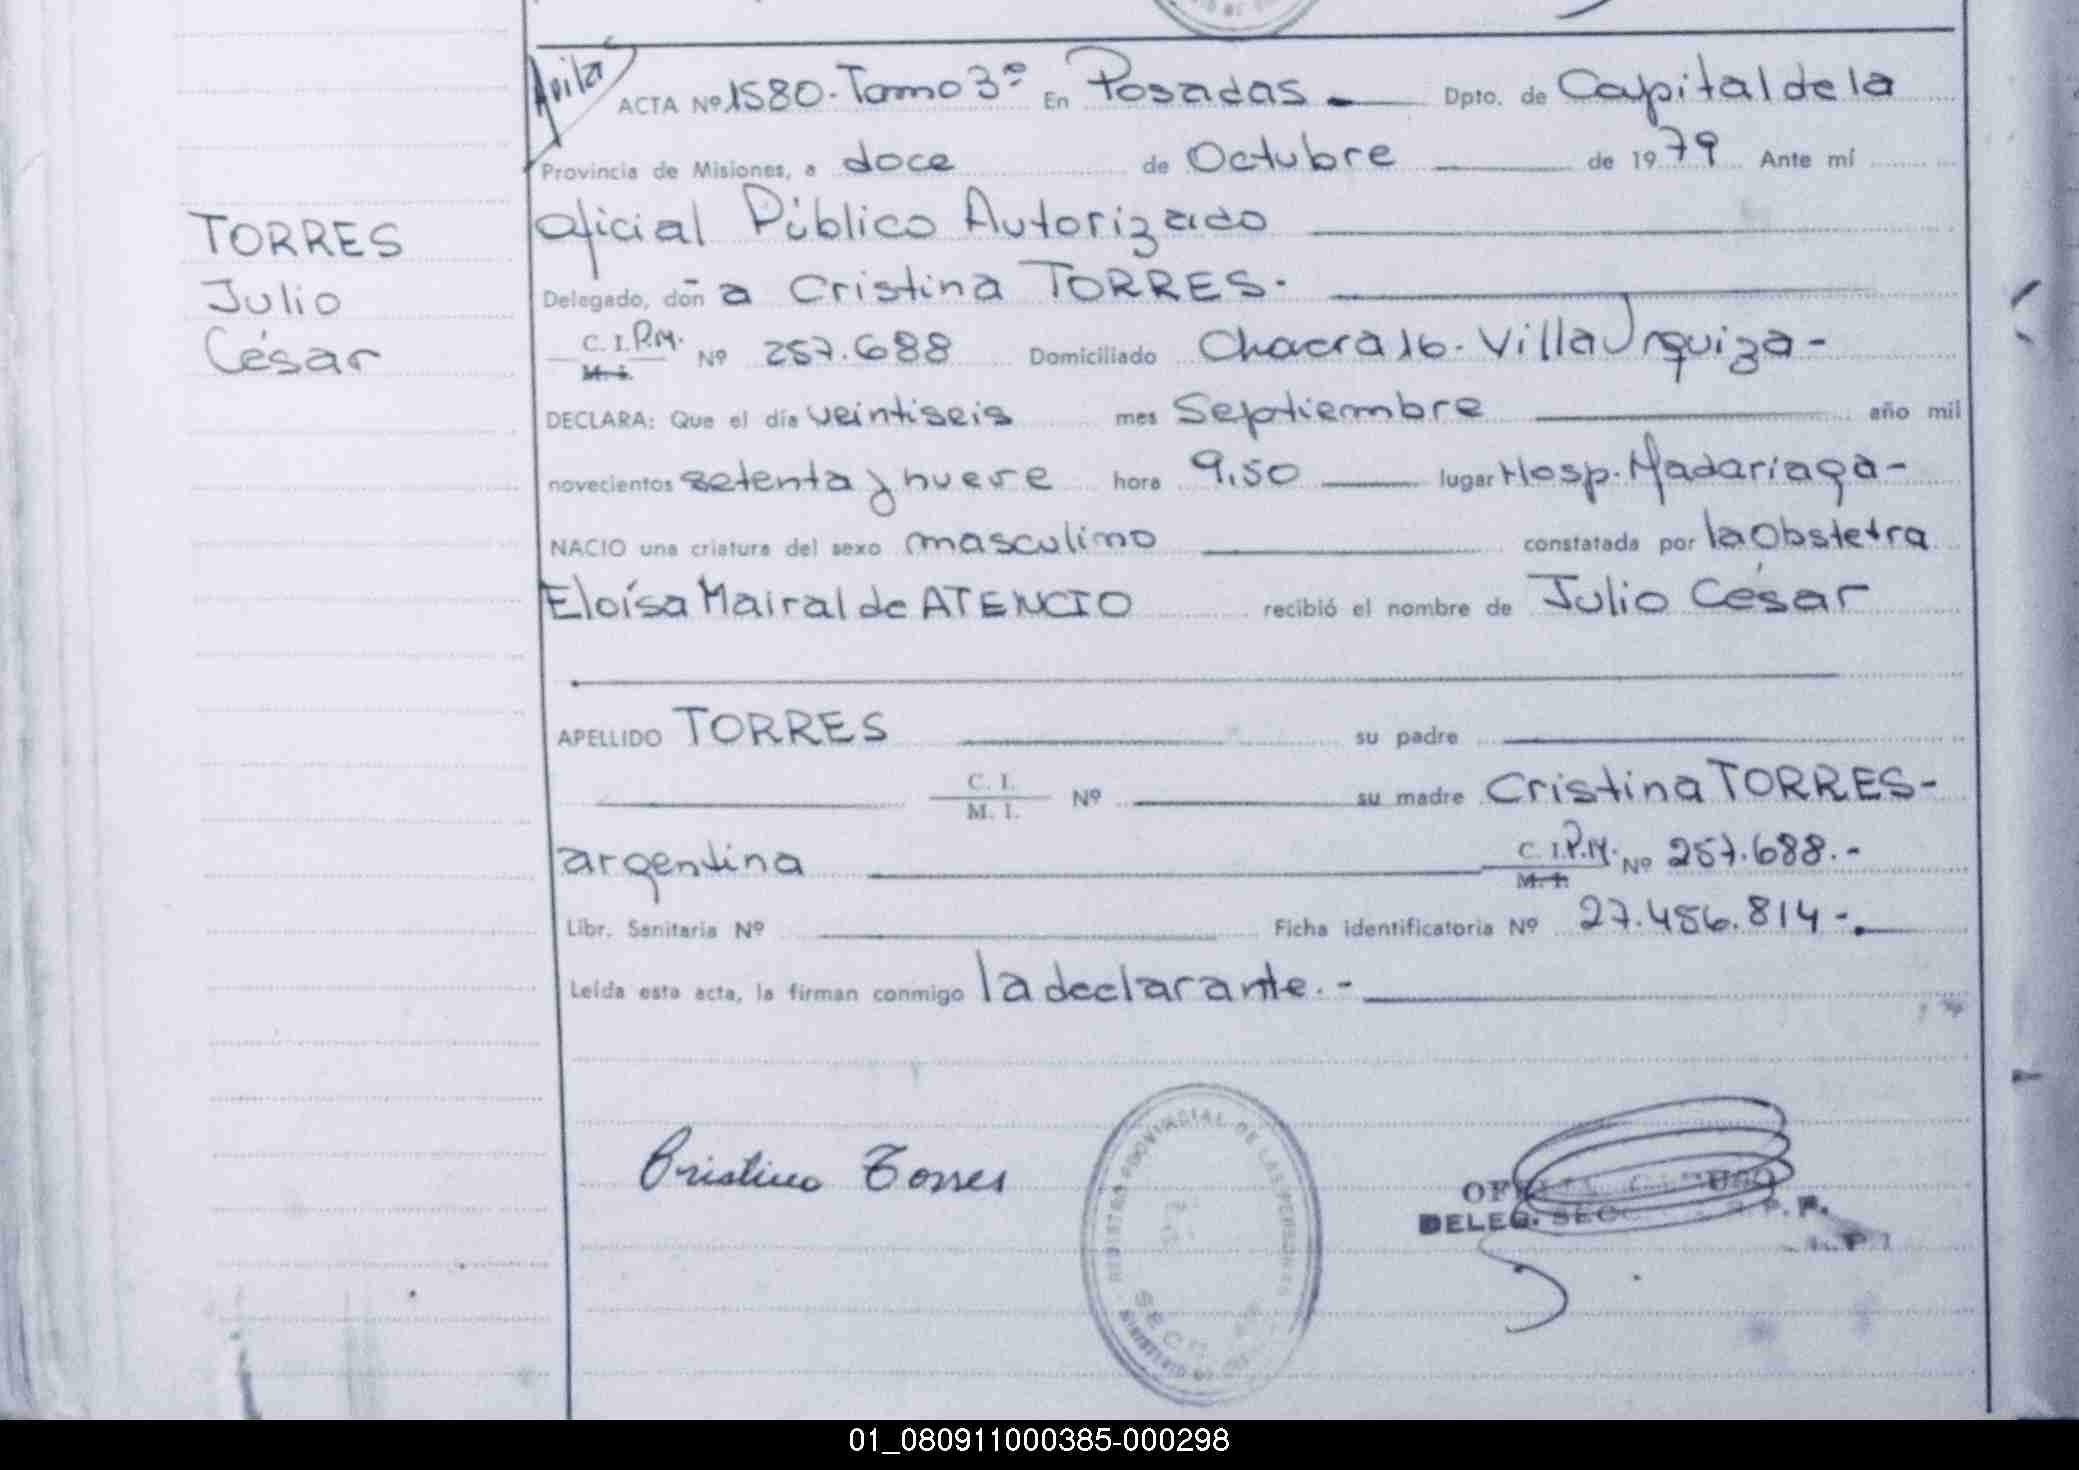 Avila
ACTA Nº 1580. Tomo 3º En Posadas Dpto. de Capital de la
Provincia de Misiones, a doce de Octubre de 1979 Ante mí
Oficial Público Autorizado
TORRES
Julio
César
Delegado, doñ a Cristina TORRES.
C. I. P.M. Nº 257.688 Domiciliado Chacra 16. Villa Urquiza-
M. I.
DECLARA: Que el día veintiseis mes Septiembre año mil
novecientos setenta y nueve hora 9,50 lugar Hosp. Madariaga-
NACIO una criatura del sexo masculino constatada por la Obstetra
Eloísa Mairal de ATENCIO recibió el nombre de Julio César
APELLIDO TORRES su padre
C. I.
M. I. Nº su madre Cristina TORRES-
argentina C. I. P.M. Nº 257.688.-
M. I.
Libr. Sanitaria Nº Ficha identificatoria Nº 27.486.814-.
Leída esta acta, la firman conmigo la declarante.-
Cristina Torres
REGISTRO PROVINCIAL DE LAS PERSONAS
SECC
MINISTERIO DE
DELEG. SECC
01_080911000385-000298